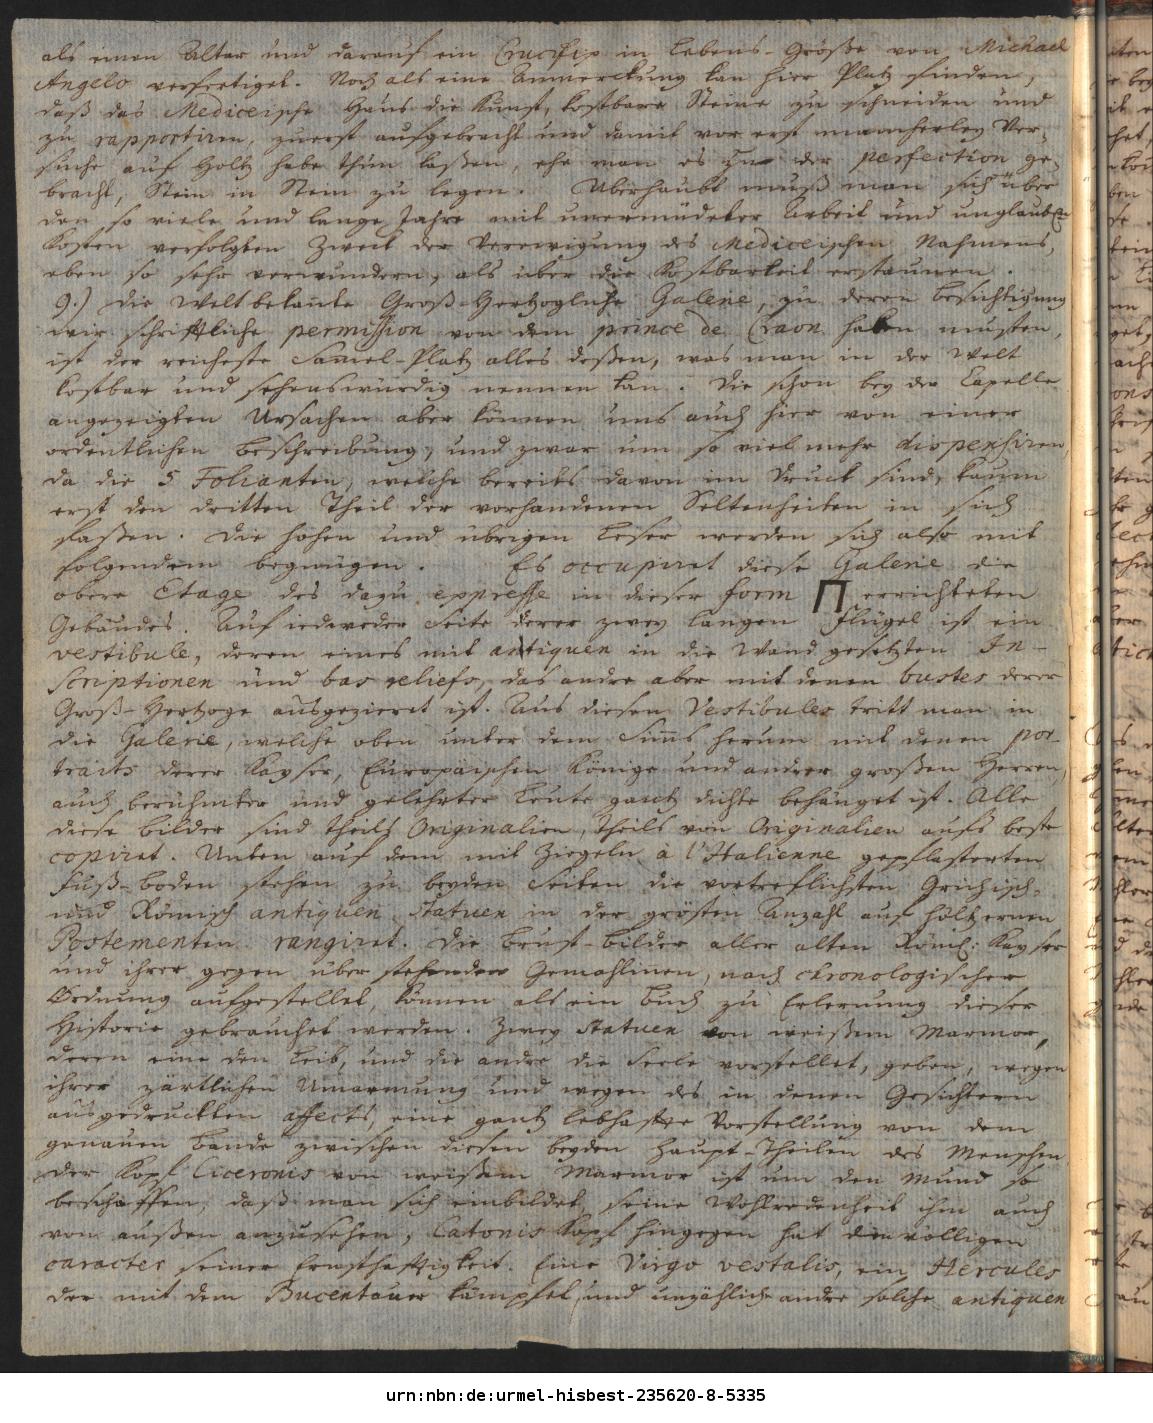 als einen Altar und darauf ein Crucifix in Lebens-Größe von Michael
Angelo verfertiget. Noch als eine Anmerckung kan hier Platz finden,
daß das Mediceische Haus die Kunst, kostbare Steine zu schneiden und
zu rapportiren, zuerst aufgebracht und damit vor erst mancherley Ver-
suche auf Holtz habe thun laßen, ehe man es zu der perfection ge-
bracht, Stein in Stein zu legen. Uberhaubt muß man sich über
den so viele und lange Jahre mit unermüdeter Arbeit und unglaubl.
Kosten verfolgten Zweck der Verewigung des Mediceischen Nahmens,
eben so sehr verwundern, als über die Kostbarkeit erstaunen.
9.) Die Weltbekannte Groß-Hertzogliche Galerie, zu deren Besichtigung
wir schrifftliche permission von dem prince de Craon haben musten,
ist der reicheste Samel-Platz alles deßen, was man in der Welt
kostbar und sehenswürdig nennen kan. Die schon bey der Capelle
angezeigten Ursachen aber können uns auch hier von einer
ordentlichen Beschreibung, und zwar um so viel mehr dispensiren,
da die 5 Folianten, welche bereits davon im Druck sind, kaum
erst den dritten Theil der vorhandenen Seltenheiten in sich
faßen. Die hohen und übrigen Leser werden sich also mit
folgendem begnügen. Es occupiret diese Galerie die
obere Etage des dazu expresse in dieser form Π errichteten
Gebäudes. Auf iedweder Seite derer zwey langen Flügel ist ein
vestibule, deren eines mit antiquen in die Wand gesetzten In-
scriptionen und bas reliefs, das andre aber mit denen bustes derer
Groß-Hertzoge ausgezieret ist. Aus diesen Vestibules tritt man in
die Galerie, welche oben unter dem Sims herum mit denen por-
traits derer Kayser, Europäischen Könige und andrer großen Herren,
auch berühmter und gelehrter Leute gantz dichte behänget ist. Alle
diese Bilder sind theils Originalien, theils von Originalien aufs beste
copiret. Unten auf dem mit Ziegeln à l'Italienne gepflasterten
Fuß-boden stehen zu beyden Seiten die vortreflichsten Grichisch-
und Römisch antiquen Statuen in der grösten Anzahl auf höltzernen
Postementen rangiret. Die Brust-Bilder aller alten Römch: Kayser
und ihrer gegen über stehenden Gemahlinnen, nach chronologischer
Ordnung aufgestellet, können als ein Buch zu Erlernung dieser
Historie gebrauchet werden. Zwey Statuen von weißem Marmor,
deren eine den Leib, und die andre die Seele vorstellet, geben, wegen
ihrer zärtlichen Umarmung und wegen des in denen Gesichtern
ausgedruckten affects, eine gantz lebhaffte Vorstellung von dem
genauen Bande zwischen diesen beyden Haupt-Theilen des Menschen.
Der Kopf Ciceronis von weißem Marmor ist um den Mund so
beschaffen, daß man sich einbildet, seine Wohlredenheit ihm auch
von außen anzusehen, Catonis Kopf hingegen hat den völligen
caracter seiner Ernsthafftigkeit. Eine Virgo vestalis, ein Hercules
der mit dem Bucentaure kämpfet, und unzähliche andre solche antiquen
urn:nbn:de:urmel-hisbest-235620-8-5335